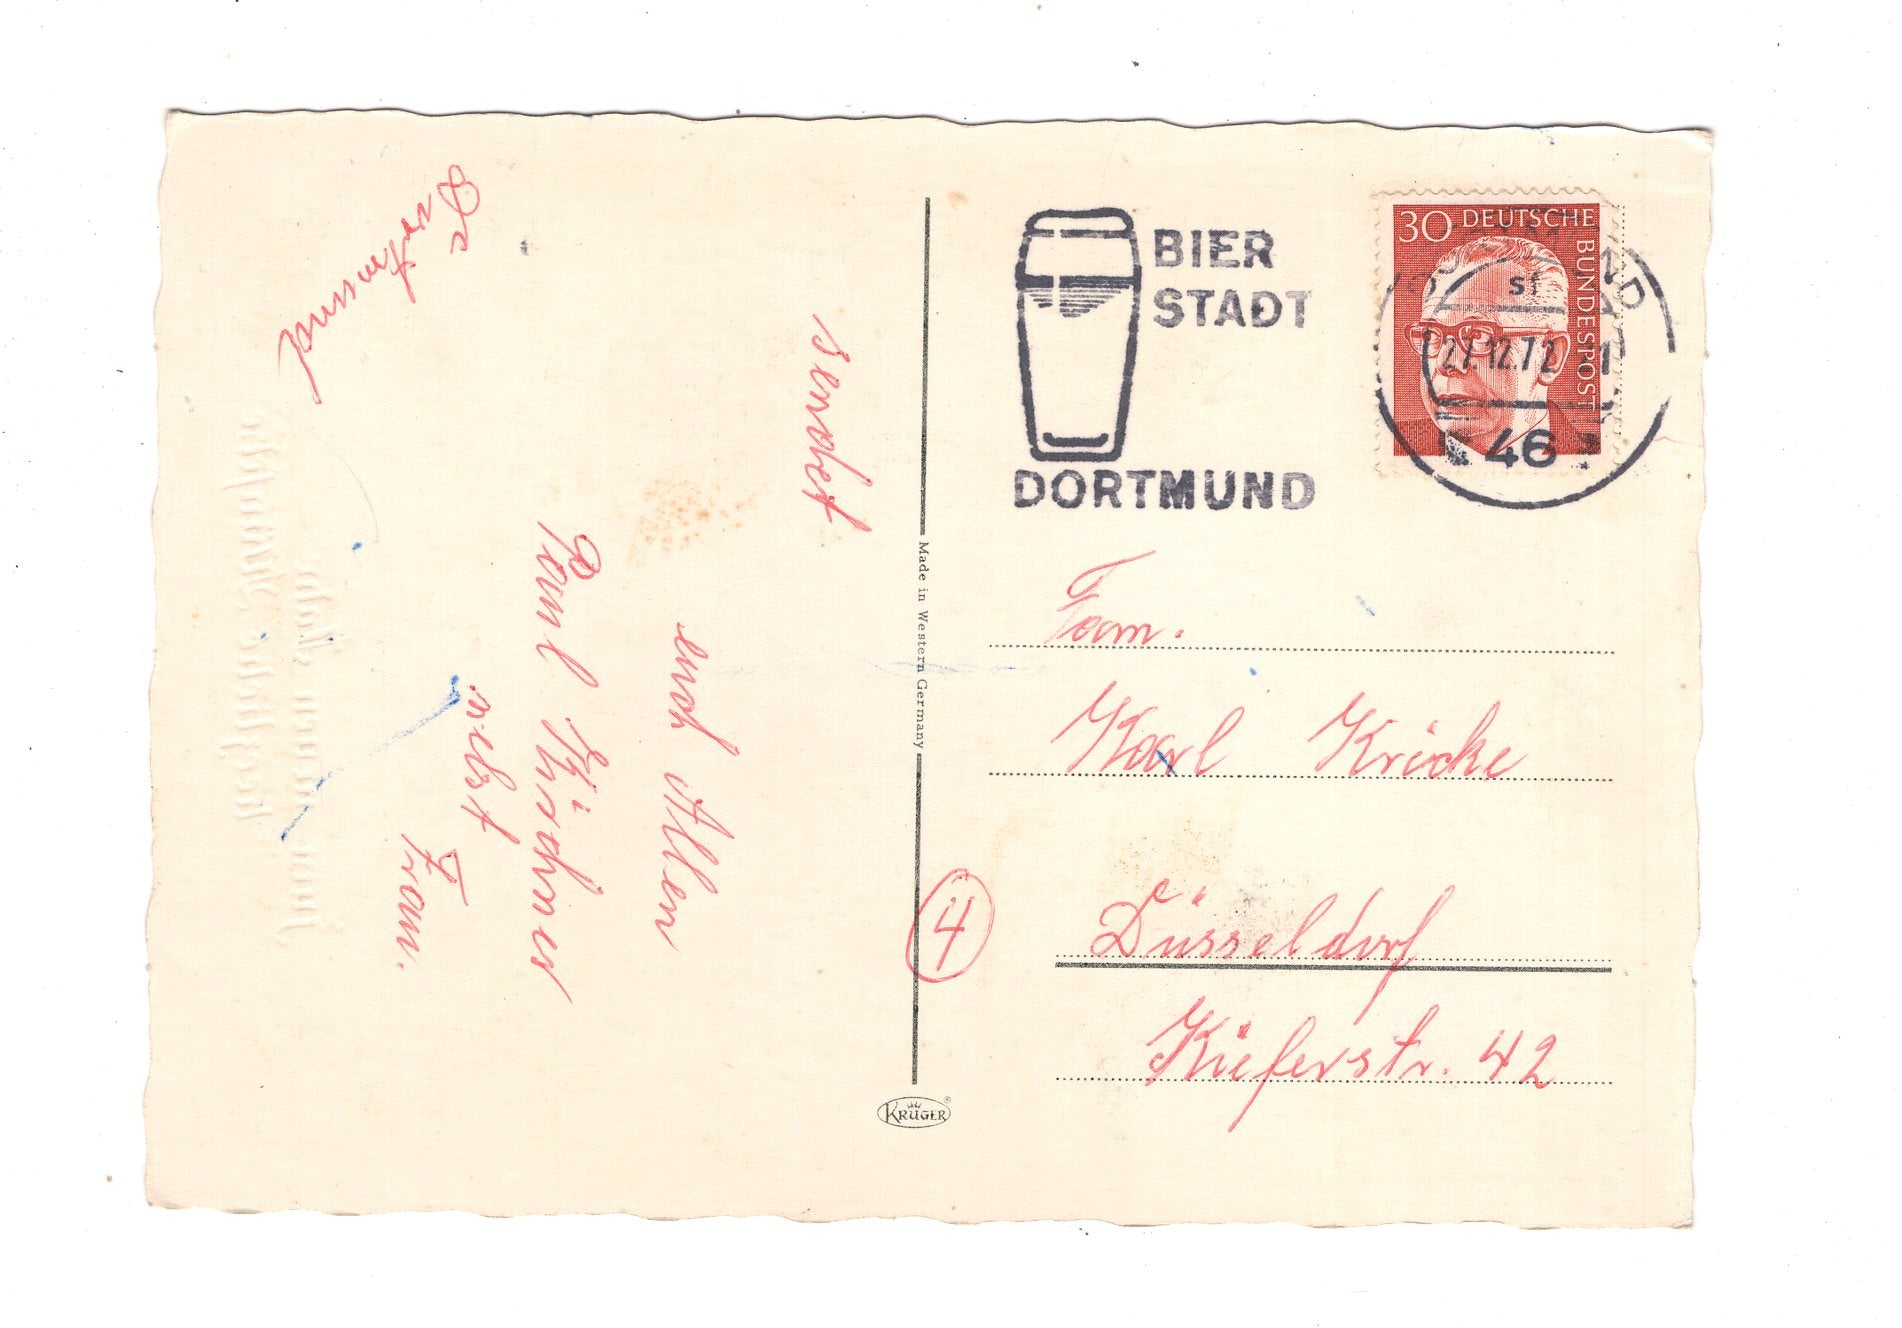 sendet
euch Allen
Paul Kirchner
nebst
Frau.
BIER
STADT
DORTMUND
30 DEUTSCHE
BUNDESPOST
27.12.72
46
Made in Western Germany
Fam.
Karl Kricke
4
Düsseldorf
Kieferstr. 42
KRÜGER